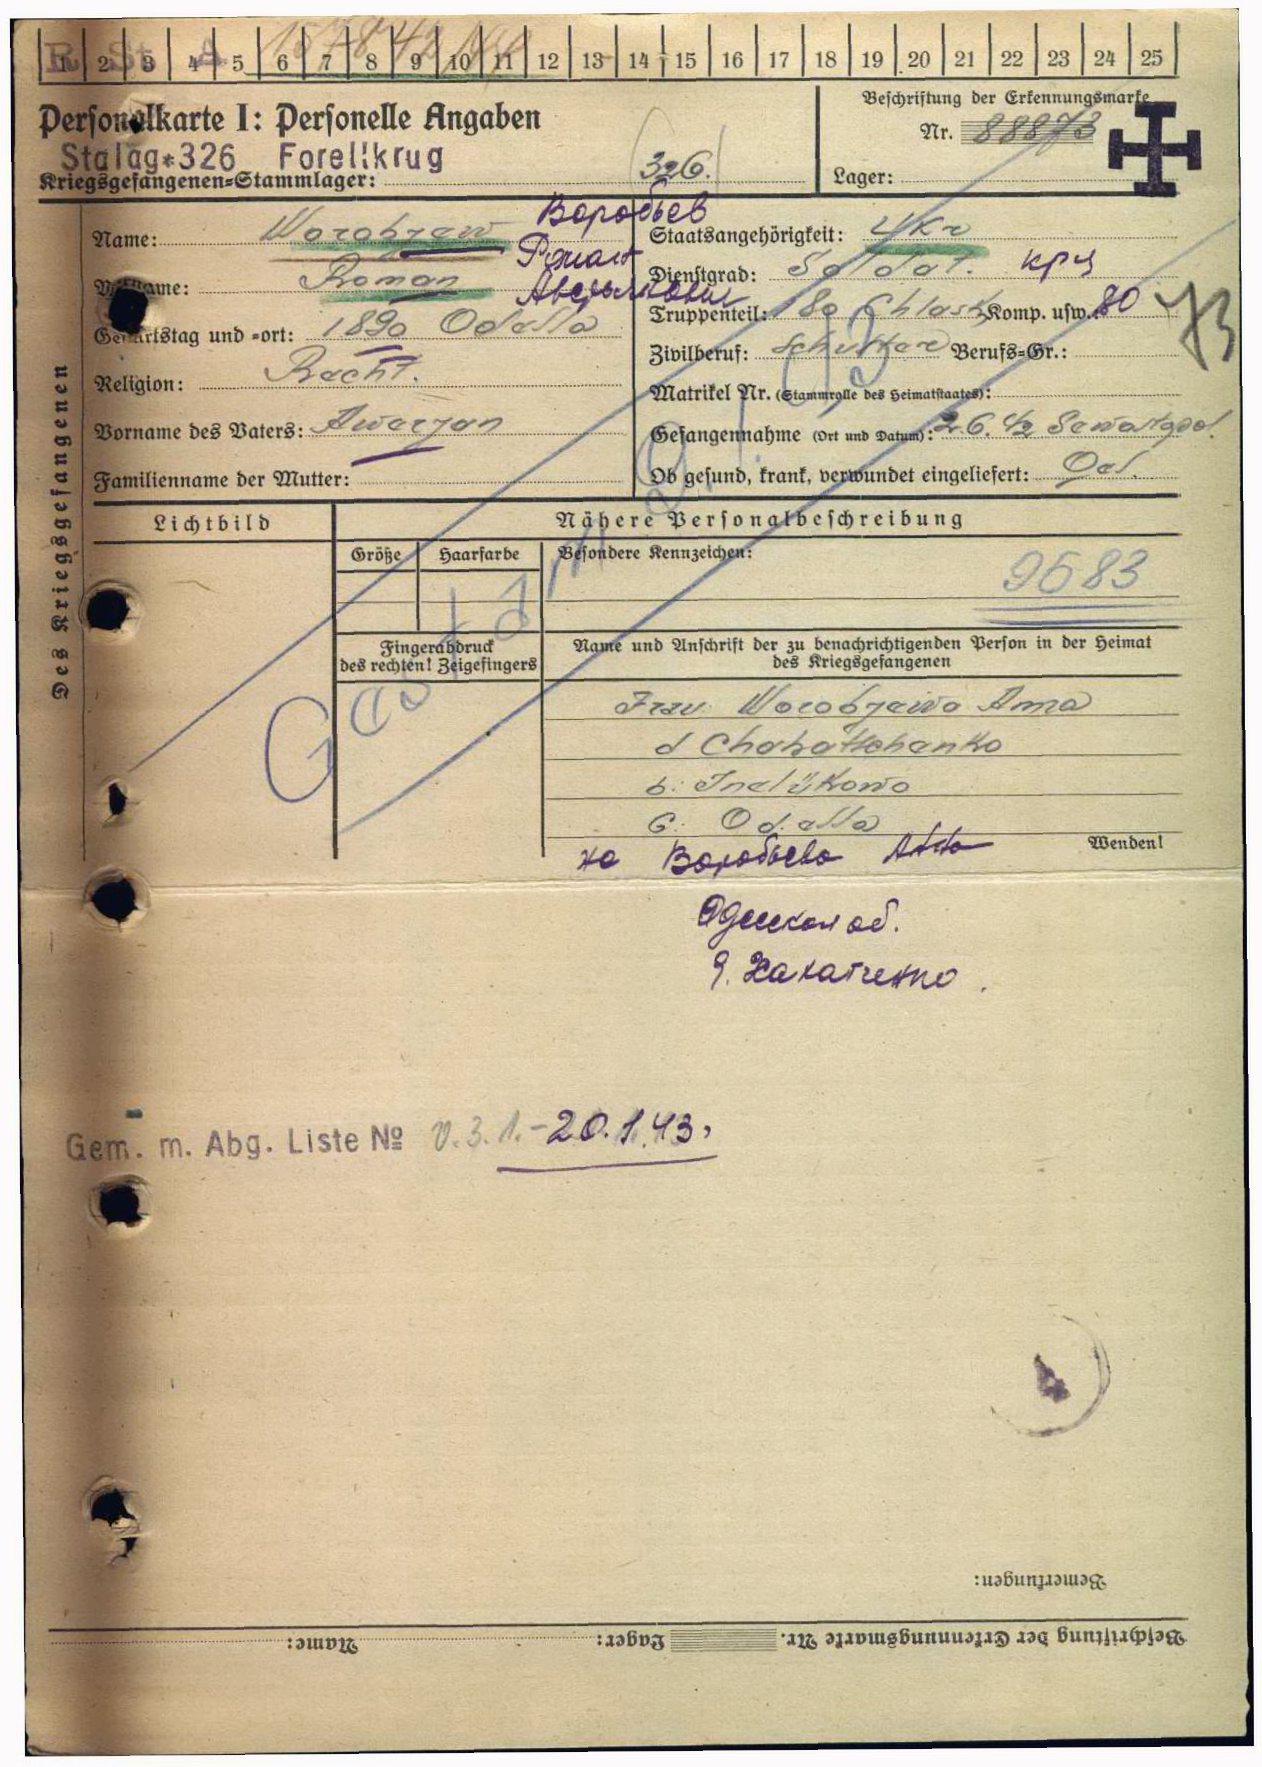 1 2 3 4 5 6 7 8 9 10 11 12 13 14 15 16 17 18 19 20 21 22 23 24 25
Personalkarte I: Personelle Angaben
Beschriftung der Erkennungsmarke
Nr. 88873
Stalag*326 Forellkrug
Kriegsgefangenen=Stammlager: 326.
Lager:
Des Kriegsgefangenen
Воробьев
Name: Worobjew
Staatsangehörigkeit: Ukr
Роман
Vorname: Roman
Dienstgrad: Soldat. крц
Аверьянович
Truppenteil: 180 Komp. usw.: 80
73
Geburtstag und =ort: 1890 Odessa
Zivilberuf: Berufs=Gr.:
Religion: Recht.
Matrikel Nr. (Stammrolle des Heimatstaates):
Vorname des Vaters: Awerjan
Gefangennahme (Ort und Datum): 2.6.42 Sewastopol.
Familienname der Mutter:
Ob gesund, krank, verwundet eingeliefert:
Lichtbild
Nähere Personalbeschreibung
Größe
Haarfarbe
Besondere Kennzeichen:
9583
Fingerabdruck
des rechten! Zeigefingers
Name und Anschrift der zu benachrichtigenden Person in der Heimat
des Kriegsgefangenen
Frau Worobjewa Anna
d Chabatschenko
G: Odessa
Wenden!
Воробьева Анна
Одесская об.
Gem. m. Abg. Liste № v. 3.1.-20.1.43.
Bemerkungen:
Beschriftung der Erkennungsmarke Nr. Lager: Name: